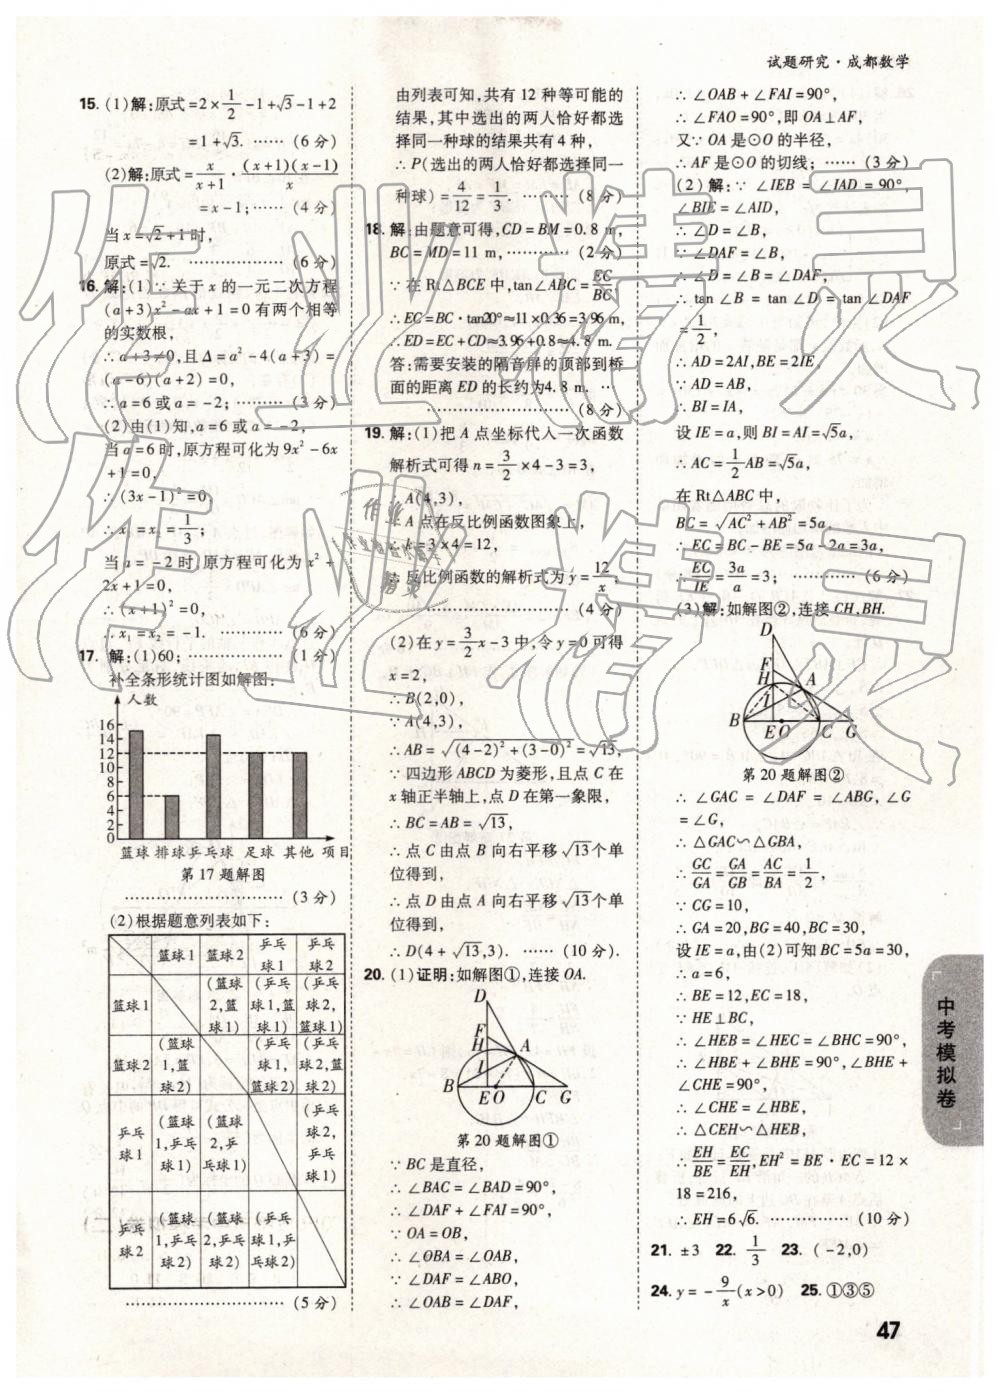 试题研究·成都数学
15. (1)解:原式=2×1/2-1+√3-1+2
=1+√3. …… (6分)
(2)解:原式=x/(x+1)·(x+1)(x-1)/x
=x-1;…… (4分)
当x=√2+1时,
原式=√2. …… (6分)
16. 解:(1)∵关于x的一元二次方程
(a+3)x²-ax+1=0有两个相等
的实数根,
∴a+3≠0,且Δ=a²-4(a+3)=
(a-6)(a+2)=0,
∴a=6或a=-2; …… (3分)
(2)由(1)知,a=6或a=-2,
当a=6时,原方程可化为9x²-6x
+1=0,
∴(3x-1)²=0,
∴x₁=x₂=1/3;
当a=-2时,原方程可化为x²+
2x+1=0,
∴(x+1)²=0,
∴x₁=x₂=-1. …… (6分)
17. 解:(1)60; …… (1分)
补全条形统计图如解图:
人数
16
14
12
10
8
6
4
2
0
篮球 排球 乒乓球 足球 其他 项目
第17题解图
…… (3分)
(2)根据题意列表如下:
篮球1 篮球2 乒乓球1 乒乓球2
篮球1 (篮球2,篮球1) (乒乓球1,篮球1) (乒乓球2,篮球1)
篮球2 (篮球1,篮球2) (乒乓球1,篮球2) (乒乓球2,篮球2)
乒乓球1 (篮球1,乒乓球1) (篮球2,乒乓球1) (乒乓球2,乒乓球1)
乒乓球2 (篮球1,乒乓球2) (篮球2,乒乓球2) (乒乓球1,乒乓球2)
…… (5分)
由列表可知,共有12种等可能的
结果,其中选出的两人恰好都选
择同一种球的结果共有4种,
∴P(选出的两人恰好都选择同一
种球)=4/12=1/3. …… (8分)
18. 解:由题意可得,CD=BM=0.8 m,
BC=MD=11 m, …… (2分)
∵在Rt△BCE中,tan∠ABC=EC/BC
∴EC=BC·tan20°≈11×0.36=3.96 m,
∴ED=EC+CD≈3.96+0.8≈4.8 m.
答:需要安装的隔音屏的顶部到桥
面的距离ED的长约为4.8 m. …
…… (8分)
19. 解:(1)把A点坐标代入一次函数
解析式可得n=3/2×4-3=3,
∴A(4,3),
∵A点在反比例函数图象上,
∴k=3×4=12,
∴反比例函数的解析式为y=12/x.
…… (4分)
(2)在y=3/2x-3中,令y=0可得
x=2,
∴B(2,0),
∵A(4,3),
∴AB=√((4-2)²+(3-0)²)=√13,
∵四边形ABCD为菱形,且点C在
x轴正半轴上,点D在第一象限,
∴BC=AB=√13,
∴点C由点B向右平移√13个单
位得到,
∴点D由点A向右平移√13个单
位得到,
∴D(4+√13,3). …… (10分).
20. (1)证明:如解图①,连接OA.
D
F
H
A
I
B E O C G
第20题解图①
∵BC是直径,
∴∠BAC=∠BAD=90°,
∴∠DAF+∠FAI=90°,
∵OA=OB,
∴∠OBA=∠OAB,
∵∠DAF=∠ABO,
∴∠OAB=∠DAF,
∴∠OAB+∠FAI=90°,
∴∠FAO=90°,即OA⊥AF,
又∵OA是⊙O的半径,
∴AF是⊙O的切线; …… (3分)
(2)解:∵∠IEB=∠IAD=90°,
∠BIE=∠AID,
∴∠D=∠B,
∵∠DAF=∠B,
∴∠D=∠B=∠DAF,
∴tan∠B=tan∠D=tan∠DAF
=1/2,
∴AD=2AI,BE=2IE,
∵AD=AB,
∴BI=IA,
设IE=a,则BI=AI=√5a,
∴AC=1/2AB=√5a,
在Rt△ABC中,
BC=√(AC²+AB²)=5a,
∴EC=BC-BE=5a-2a=3a,
∴EC/IE=3a/a=3; …… (6分)
(3)解:如解图②,连接CH,BH.
D
F
H
A
I
B E O C G
第20题解图②
∴∠GAC=∠DAF=∠ABG,∠G
=∠G,
∴△GAC∽△GBA,
∴GC/GA=GA/GB=AC/BA=1/2,
∵CG=10,
∴GA=20,BG=40,BC=30,
设IE=a,由(2)可知BC=5a=30,
∴a=6,
∴BE=12,EC=18,
∵HE⊥BC,
∴∠HEB=∠HEC=∠BHC=90°,
∴∠HBE+∠BHE=90°,∠BHE+
∠CHE=90°,
∴∠CHE=∠HBE,
∴△CEH∽△HEB,
∴EH/BE=EC/EH,EH²=BE·EC=12×
18=216,
∴EH=6√6. …… (10分)
21. ±3 22. 1/3 23. (-2,0)
24. y=-9/x(x>0) 25. ①③⑤
中考模拟卷
47
作业精灵
作业精灵
作业
精灵